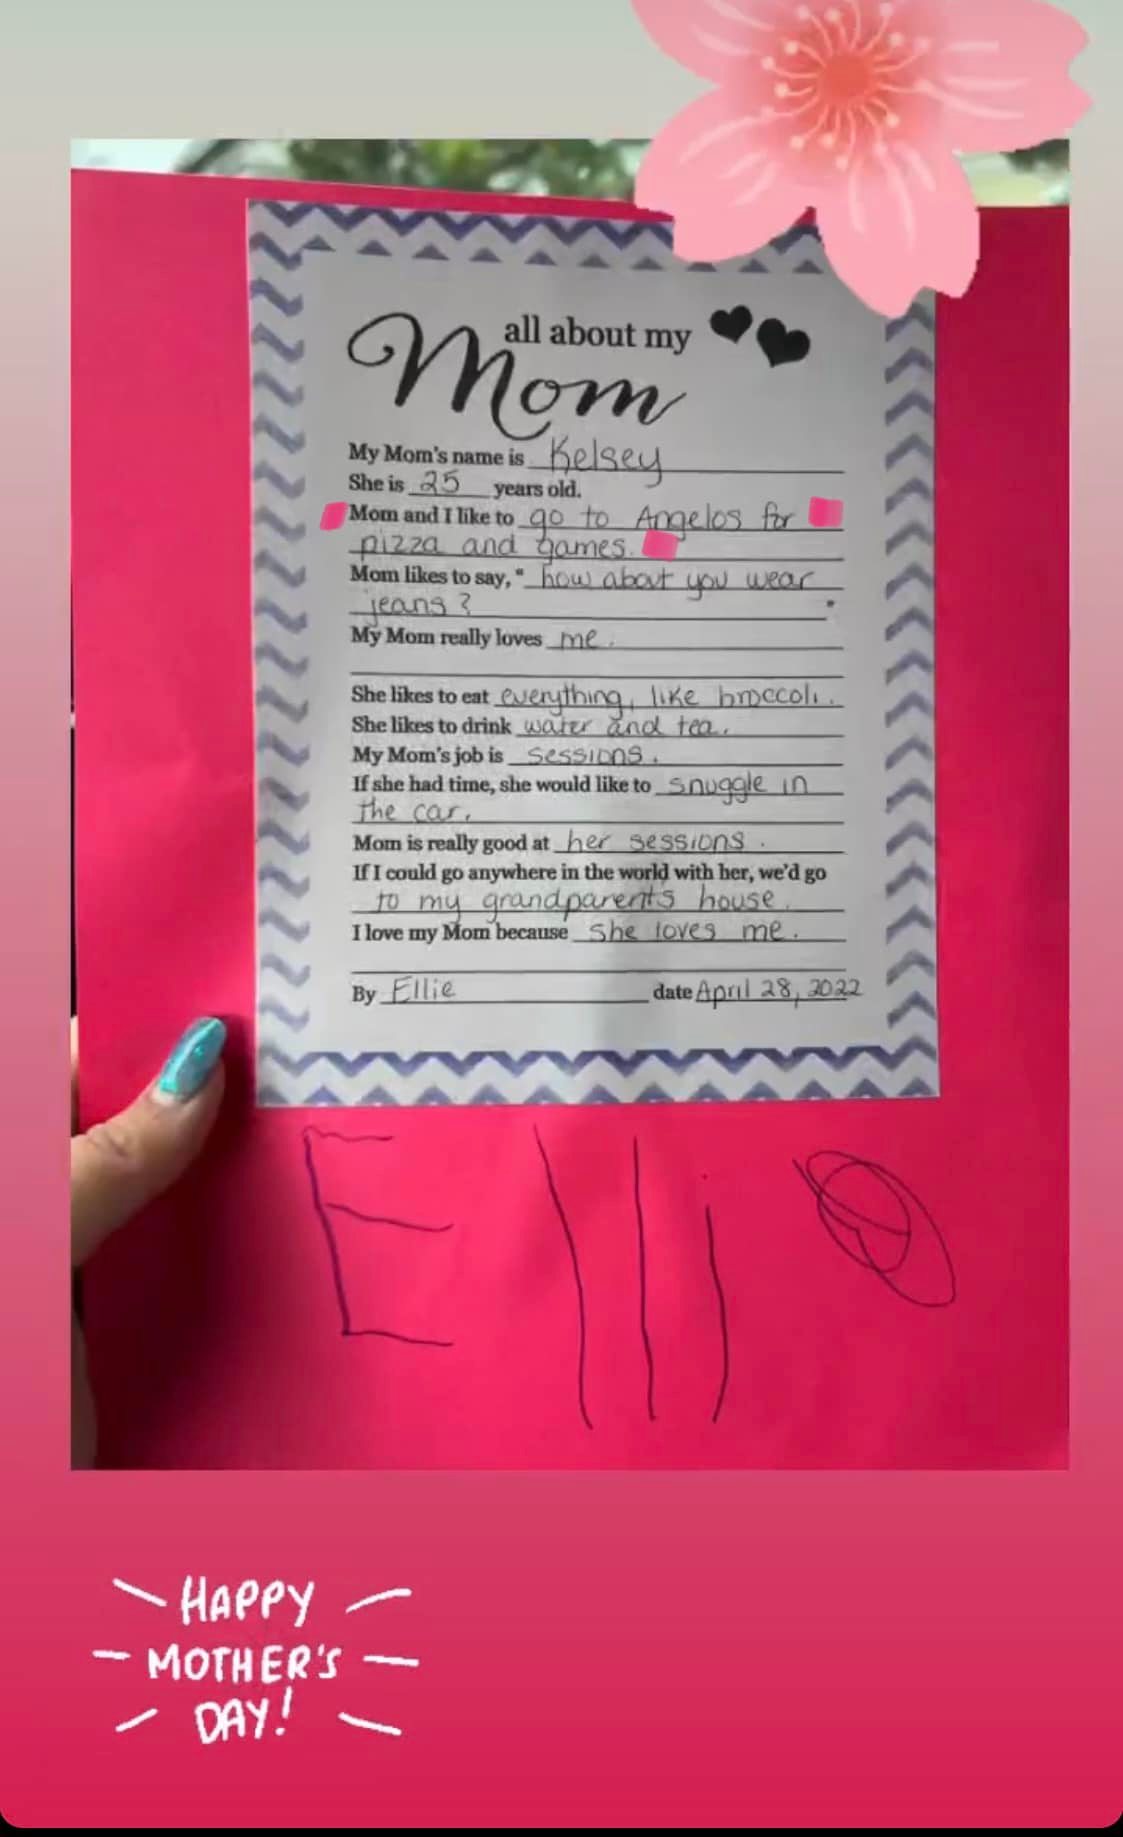 all about my
Mom
My Mom's name is Kelsey
She is 25 years old.
Mom and I like to go to Angelos for
pizza and games.
Mom likes to say, "how about you wear
jeans? "
My Mom really loves me.
She likes to eat everything, like broccoli.
She likes to drink water and tea.
My Mom's job is sessions.
If she had time, she would like to snuggle in
the car.
Mom is really good at her sessions.
If I could go anywhere in the world with her, we'd go
to my grandparents house.
I love my Mom because she loves me.
By Ellie date April 28, 2022
Ellie
HAPPY
MOTHER'S
DAY!